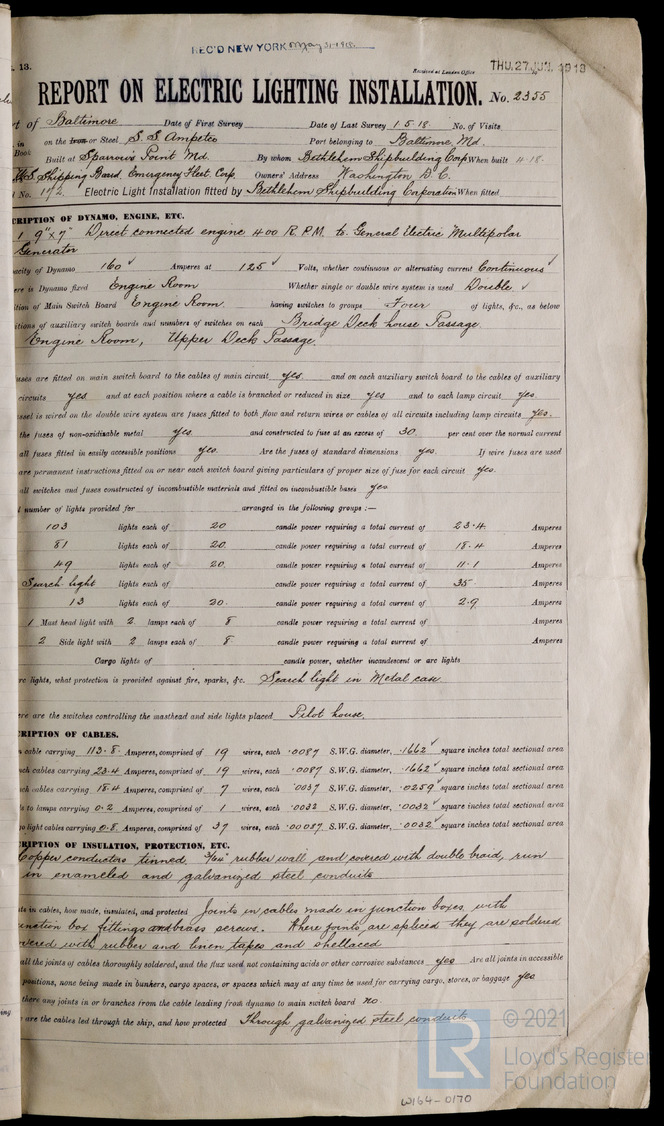 REC'D NEW YORK May 31-1918
. 13.
Received at London Office
THU. 27 JUN. 1918
REPORT ON ELECTRIC LIGHTING INSTALLATION. No. 2355
t of Baltimore Date of First Survey Date of Last Survey 1-5-18. No. of Visits
in Book on the Iron or Steel S.S. Ampetco Port belonging to Baltimore, Md.
Built at Sparrows Point Md. By whom Bethlehem Shipbuilding Corp When built 4-18.
U.S. Shipping Board. Emergency Fleet Corp. Owners' Address Washington D.C.
No. 172. Electric Light Installation fitted by Bethlehem Shipbuilding Corporation When fitted
CRIPTION OF DYNAMO, ENGINE, ETC.
1 9" x 7" Direct connected engine 400 R.P.M. to General Electric Multipolar
Generator
acity of Dynamo 160 Amperes at 125 Volts, whether continuous or alternating current Continuous
ere is Dynamo fixed Engine Room Whether single or double wire system is used Double
ition of Main Switch Board Engine Room having switches to groups Four of lights, &c., as below
itions of auxiliary switch boards and numbers of switches on each Bridge Deck house Passage.
Engine Room, Upper Deck Passage.
uses are fitted on main switch board to the cables of main circuit yes and on each auxiliary switch board to the cables of auxiliary
circuits yes and at each position where a cable is branched or reduced in size yes and to each lamp circuit yes
ssel is wired on the double wire system are fuses fitted to both flow and return wires or cables of all circuits including lamp circuits yes.
the fuses of non-oxidisable metal yes and constructed to fuse at an excess of 30 per cent over the normal current
all fuses fitted in easily accessible positions yes. Are the fuses of standard dimensions yes. If wire fuses are used
are permanent instructions fitted on or near each switch board giving particulars of proper size of fuse for each circuit yes.
all switches and fuses constructed of incombustible materials and fitted on incombustible bases yes
l number of lights provided for arranged in the following groups :—
103 lights each of 20 candle power requiring a total current of 23.4 Amperes
81 lights each of 20. candle power requiring a total current of 18.4 Amperes
49 lights each of 20. candle power requiring a total current of 11.1 Amperes
Search light lights each of candle power requiring a total current of 35. Amperes
13 lights each of 20. candle power requiring a total current of 2.9 Amperes
1 Mast head light with 2 lamps each of 8 candle power requiring a total current of Amperes
2 Side light with 2 lamps each of 8 candle power requiring a total current of Amperes
Cargo lights of candle power, whether incandescent or arc lights
rc lights, what protection is provided against fire, sparks, &c. Search light in Metal case
ere are the switches controlling the masthead and side lights placed Pilot house.
CRIPTION OF CABLES.
n cable carrying 113.8. Amperes, comprised of 19 wires, each .0087 S.W.G. diameter, .1662 square inches total sectional area
nch cables carrying 23.4 Amperes, comprised of 19 wires, each .0087 S.W.G. diameter, .1662 square inches total sectional area
nch cables carrying 18.4 Amperes, comprised of 7 wires, each .0037 S.W.G. diameter, .0259 square inches total sectional area
ds to lamps carrying 0.2 Amperes, comprised of 1 wires, each .0032 S.W.G. diameter, .0032 square inches total sectional area
go light cables carrying 0.8. Amperes, comprised of 37 wires, each .00087 S.W.G. diameter, .0032 square inches total sectional area
CRIPTION OF INSULATION, PROTECTION, ETC.
Copper conductors tinned, 3/64" rubber wall and covered with double braid, run
in enameled and galvanized steel conduits
ts in cables, how made, insulated, and protected Joints in cables made in junction boxes with
unction box fittings and brass screws. Where joints are spliced they are soldered
overed with rubber and linen tapes and shellaced
all the joints of cables thoroughly soldered, and the flux used not containing acids or other corrosive substances yes Are all joints in accessible
positions, none being made in bunkers, cargo spaces, or spaces which may at any time be used for carrying cargo, stores, or baggage yes
there any joints in or branches from the cable leading from dynamo to main switch board no.
are the cables led through the ship, and how protected Through galvanized steel conduits
© 2021
LR
Lloyd's Register
Foundation
W164-0170